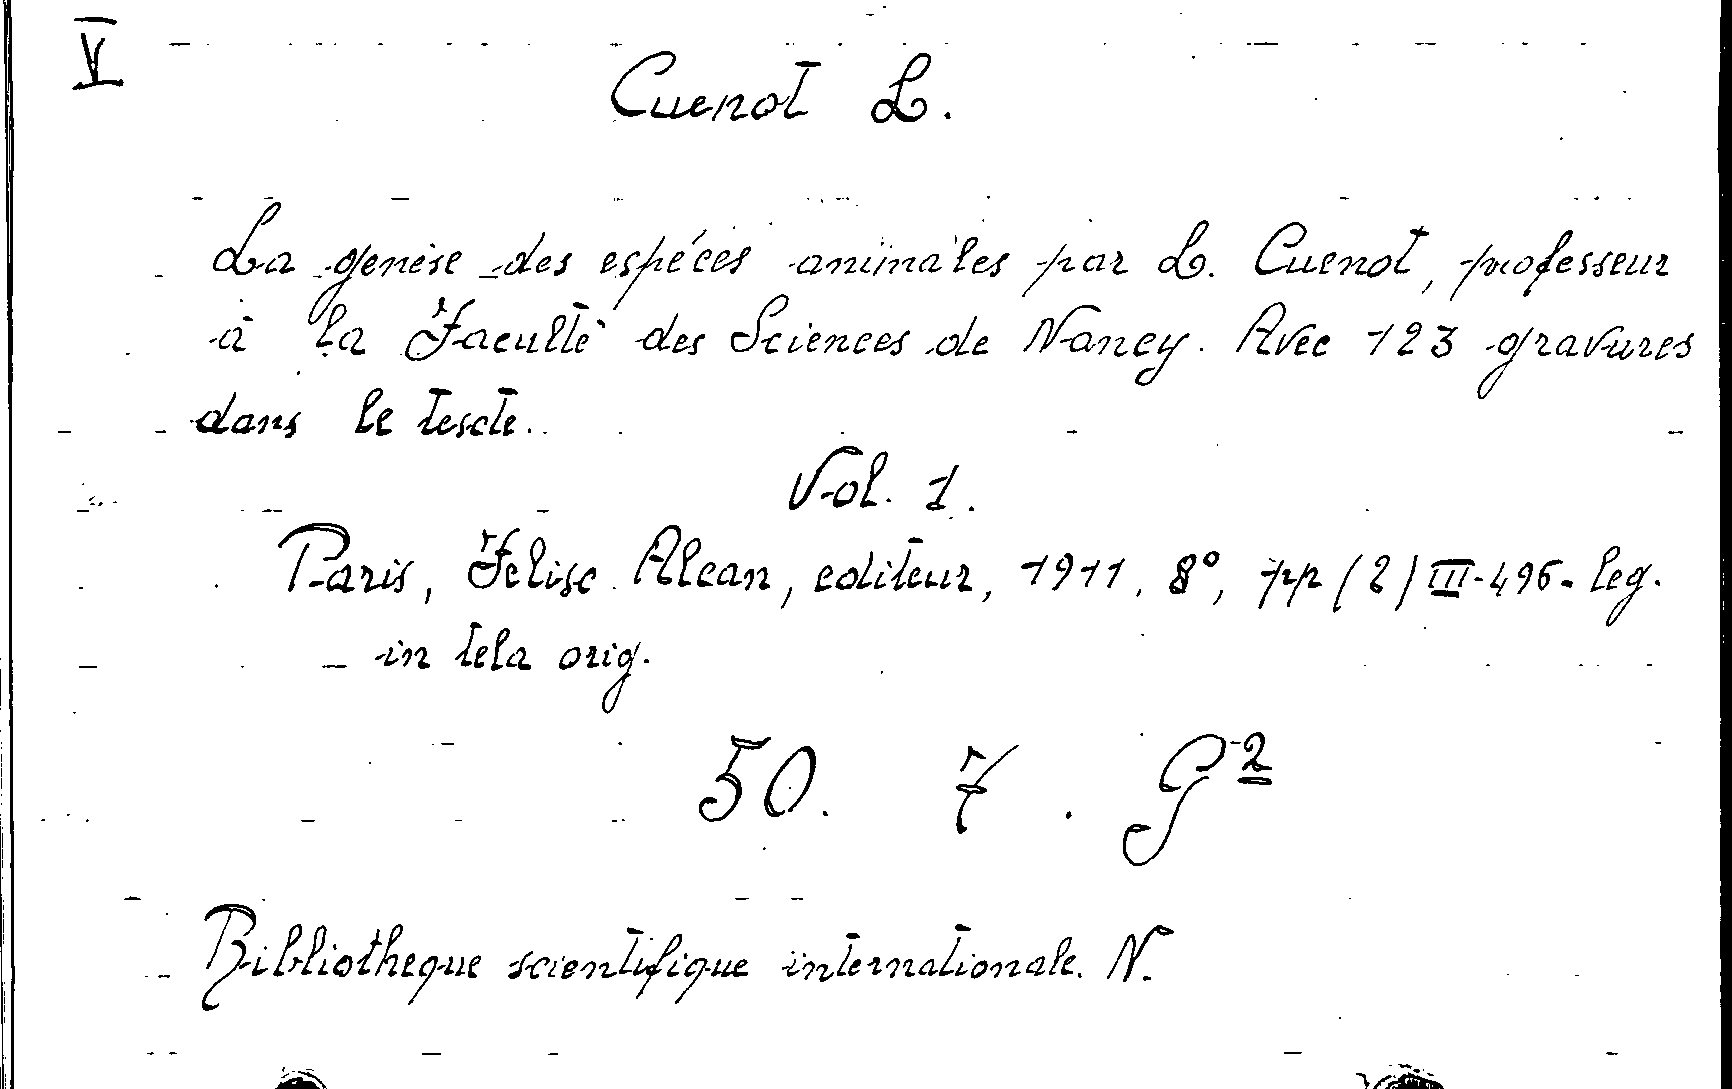 V
Cuenot L.
La genèse des espéces animales par L. Cuenot, professeur
à la Faculté des Sciences de Nancy. Avec 123 gravures
dans le texte.
Vol. 1.
Paris, Felix Alcan, editeur, 1911, 8°, pp (2) III-496- leg.
in tela orig.
50. 7. G²
Bibliotheque scientifique internationale. N.